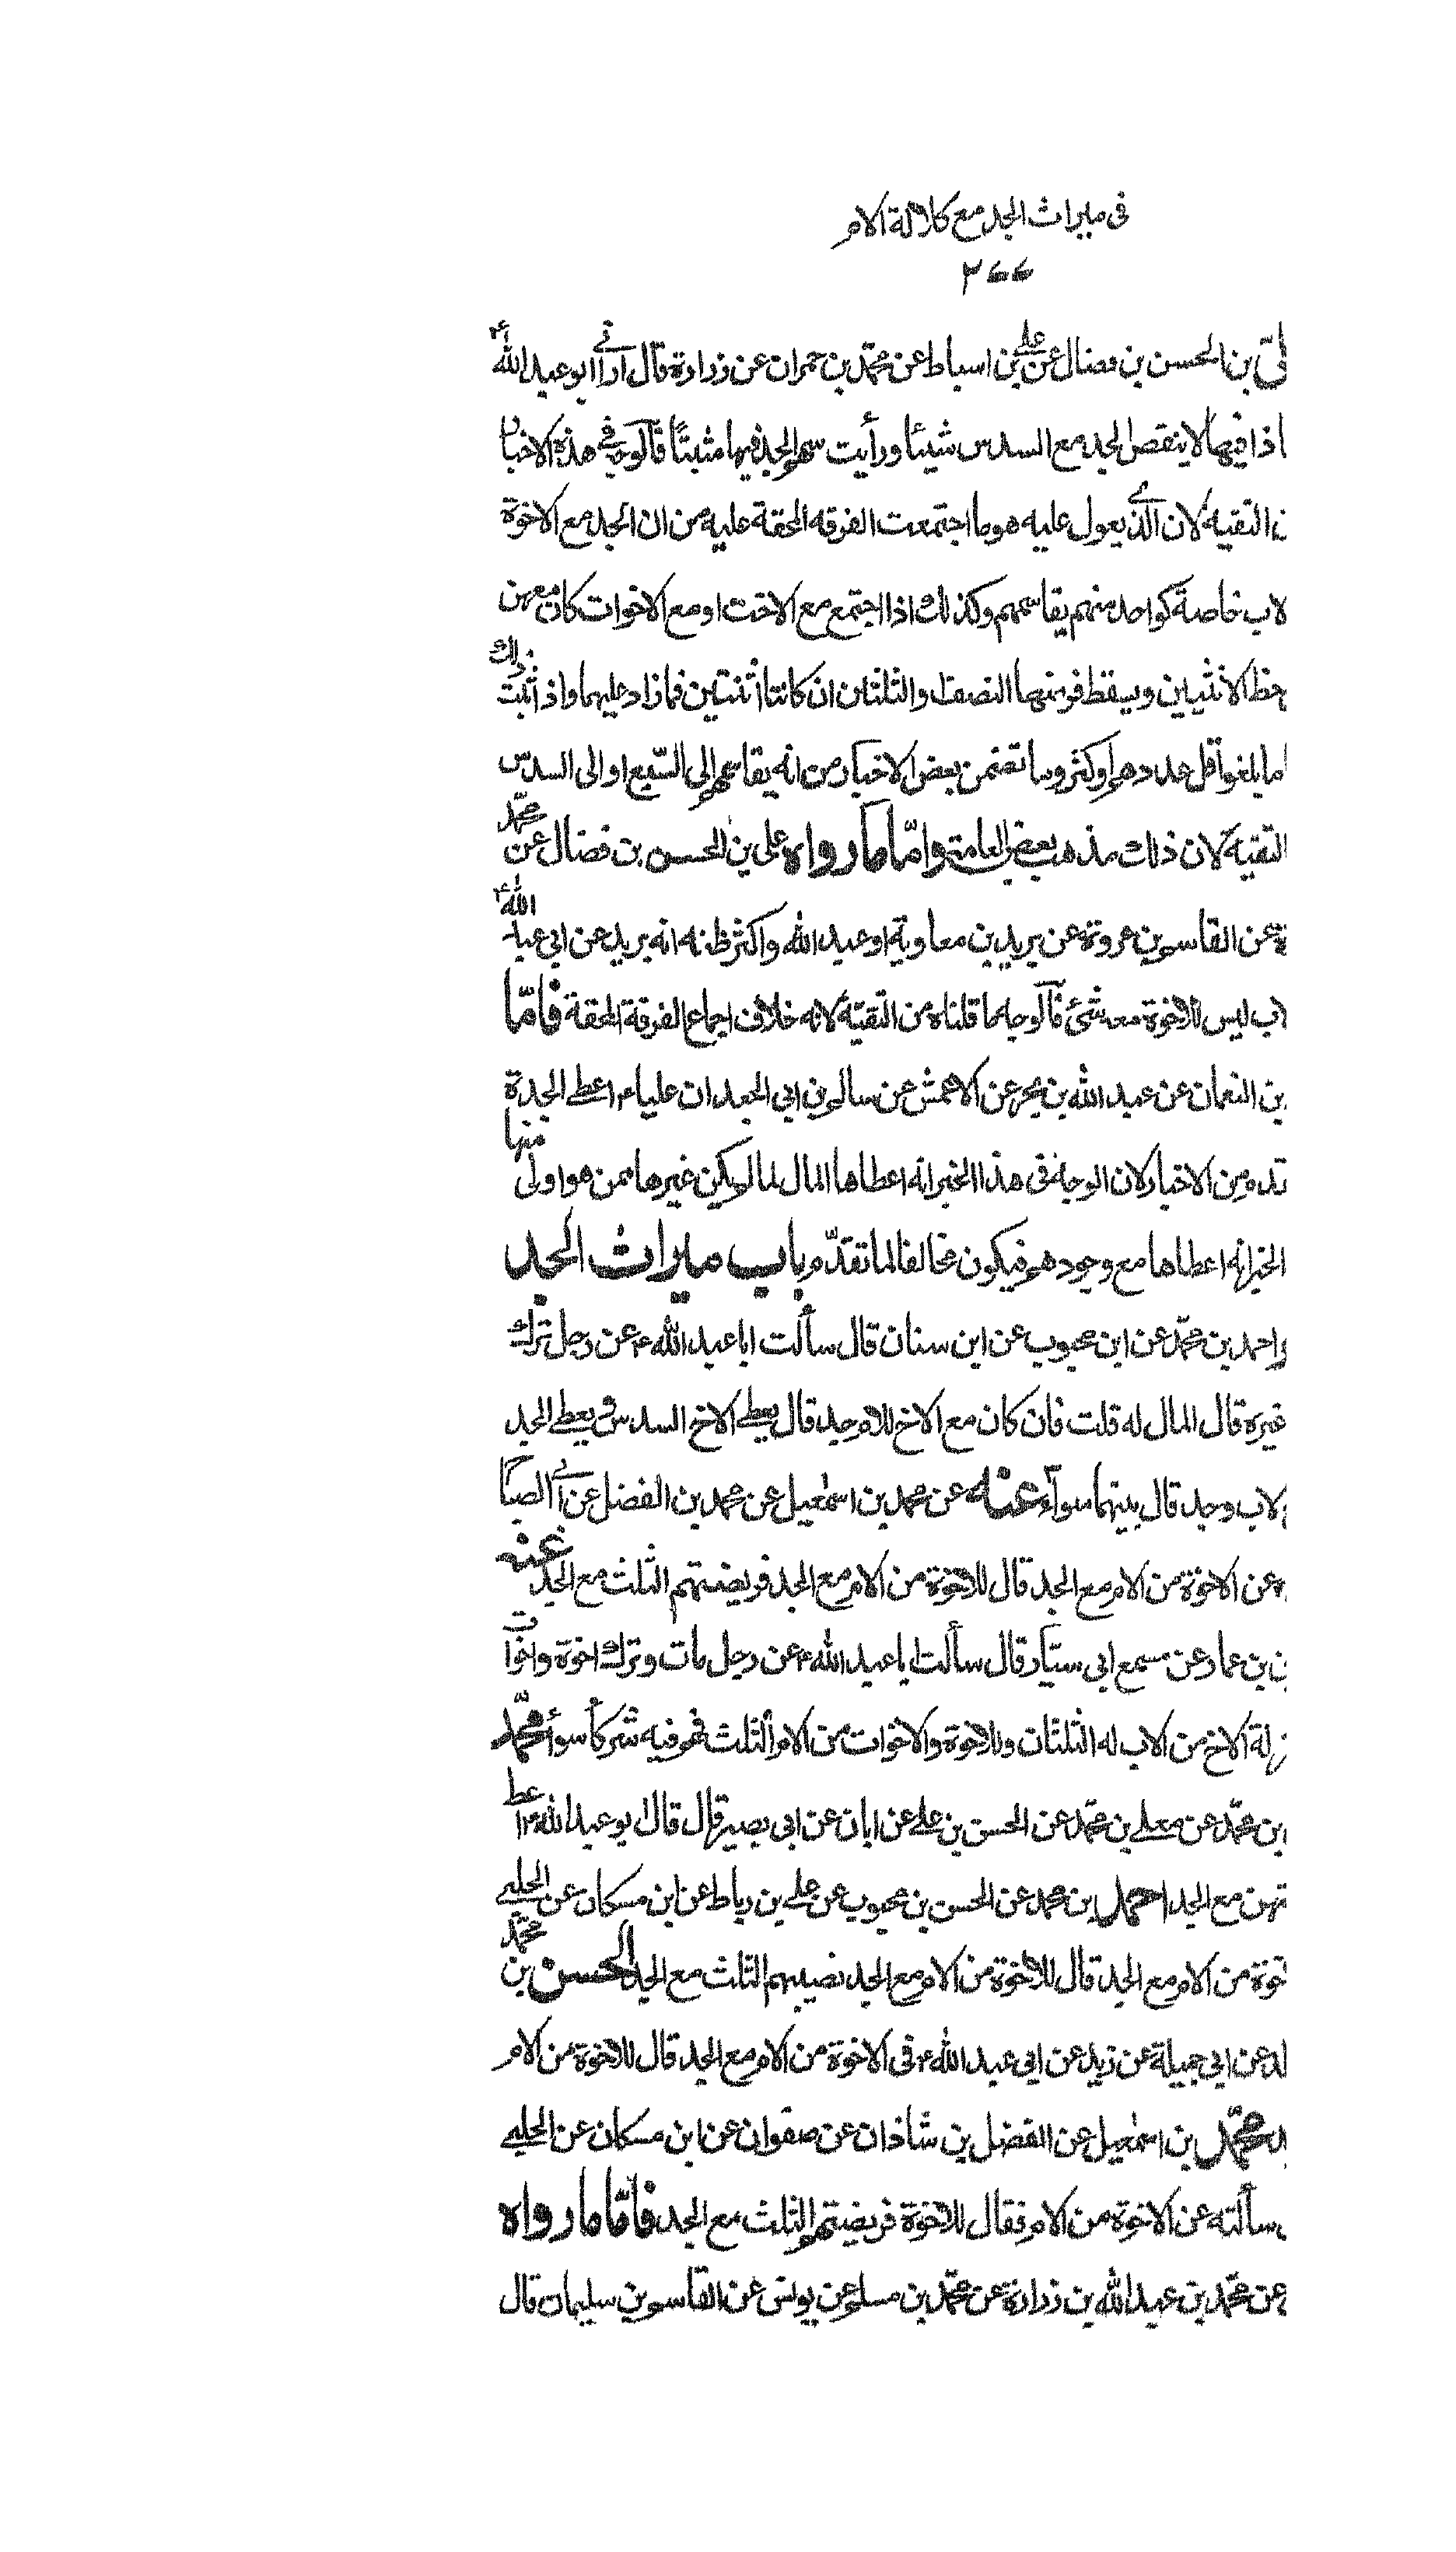 في ميراث الجد مع كلالة الام
٢٦٦
علىّ بن الحسن بن فضال عن على بن اسباط عن محمّد بن حمران عن زرارة قال ارانى ابو عبد الله ع
فاذا فيها لا ينقص الجد مع السدس شيئا ورأيت سهم الجد فيها مثبتًا فالوجه في هذه الاخبار
التقية لان الذي يعول عليه هو ما اجتمعت الفرقه المحقة عليه من ان الجد مع الاخوة
لاب خاصة كواحد منهم يقاسمهم وكذلك اذا اجتمع مع الاخت او مع الاخوات كان معهن
حظ الانثيين ويسقط فرضهما النصف والثلثان ان كانتا اثنتين فما زاد عليهما واذا ثبت ذلك
ما بلغوا قل عددهم او كثر وما تضمن بعض الاخبار من انه يقاسمهم الى السّبع او الى السدس
التقية لان ذلك مذهب بعض العامة وامّا ما رواه على بن الحسن بن فضال عن محمّد
عن القاسم بن عروة عن بريد بن معاوية او عبد الله واكثر ظنه انه بريد عن ابي عبد الله ع
لاب ليس للاخوة معه شئ فالوجه ما قلناه من التقيّة لانه خلاف اجماع الفرقة المحقة فامّا
بن النعمان عن عبد الله بن بحر عن الاعمش عن سالم بن ابي الجعد ان عليا ع اعطى الجدة
من الاخبار لان الوجه في هذا الخبر انه اعطاها المال لما لم يكن غيرها ممن هو اولى منها
الخبر انه اعطاها مع وجودهم فيكون مخالفا لما تقدّم باب ميراث الجد
احمد بن محمّد عن ابن محبوب عن ابن سنان قال سألت ابا عبد الله ع عن رجل ترك
غيره قال المال له قلت فان كان مع الاخ للام جد قال يعطى الاخ السدس ويعطى الجد
لاب وجد قال بينهما سواء عنه عن محمد بن اسمعيل عن محمد بن الفضل عن ابى الصباح
عن الاخوة من الام مع الجد قال للاخوة من الام مع الجد فريضتهم الثلث مع الجد عنه
بن عمار عن مسمع ابي سيّار قال سألت ابا عبد الله ع عن رجل مات وترك اخوة واخوات
الاخ من الاب له الثلثان وللاخوة والاخوات من الام الثلث فهم فيه شركاء سواء محمّد
بن محمّد عن معلى بن محمّد عن الحسن بن على عن ابان عن ابي بصير قال قال ابو عبد الله ع اعط
مع الجد احمد بن محمد عن الحسن بن محبوب عن على بن رباط عن ابن مسكان عن الحلبي
من الام مع الجد قال للاخوة من الام مع الجد نصيبهم الثلث مع الجد الحسن بن محمّد
عن ابي جميلة عن زيد عن ابي عبد الله ع في الاخوة من الام مع الجد قال للاخوة من الام
محمّد بن اسمعيل عن الفضل بن شاذان عن صفوان عن ابن مسكان عن الحلبي
سألته عن الاخوة من الام فقال للاخوة فريضتهم الثلث مع الجد فامّا ما رواه
عن محمّد بن عبد الله بن زرارة عن محمّد بن مسلم عن يونس عن القاسم بن سليمان قال